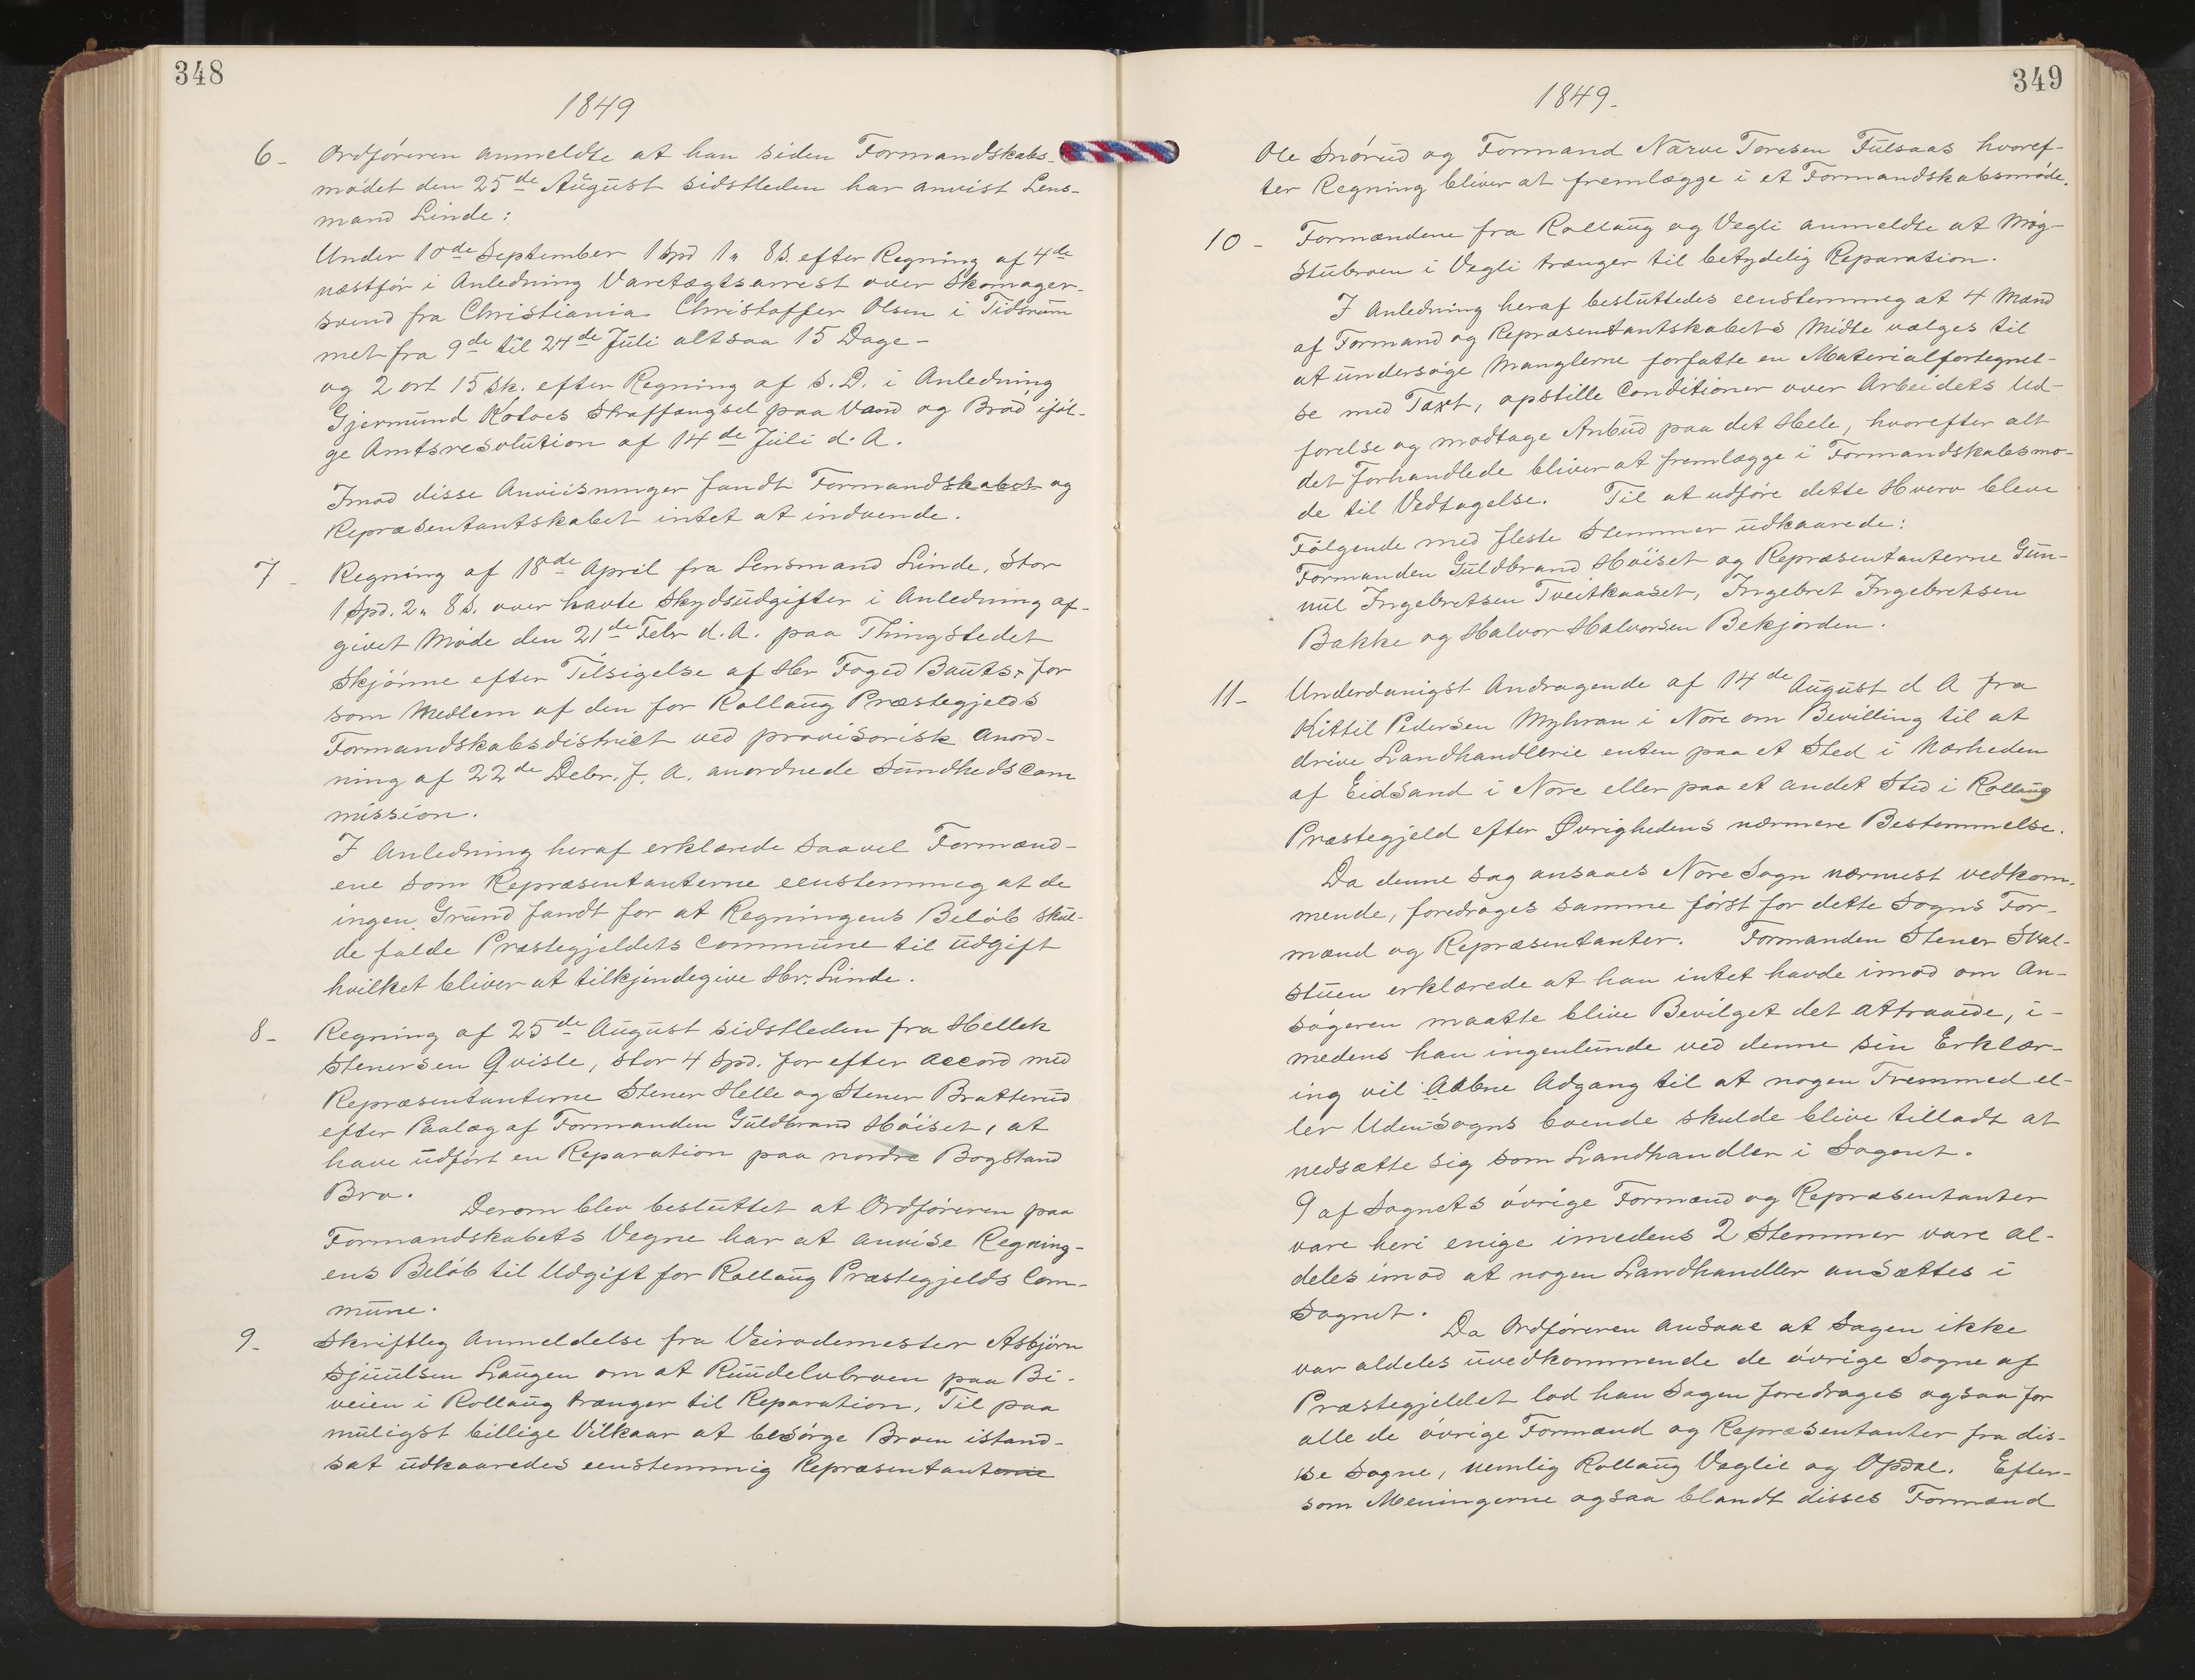 348
1849
6 - Ordføreren anmeldte at han siden Formandskabs-
mødet den 25de August sidstleden har anvist Lens-
mand Linde:
Under 10de September 1 Spd 1" 8 s. efter Regning af 4de
næstfør i Anledning Varetægtsarrest over Skomager-
svend fra Christiania Christoffer Olsen i Tidsrum
met fra 9de til 24de Juli altsaa 15 Dage -
og 2 ort 15 sk. efter Regning af S. D. i Anledning
Gjermund Kølves Straffangsel paa Vand og Brød iføl-
ge Amtsresolution af 14de Juli d. A.
Imod disse Anviisninger fandt Formandskabet og
Repræsentantskabet intet at indvende.
7 - Regning af 18de April fra Lensmand Linde, Stor
1 Spd. 2" 8 s. over havte Skydsudgifter i Anledning af-
givet Møde den 21de Febr d. A. paa Thingstedet
Skjønne efter Tilsigelse af Hr Foged Bauts, for
som Medlem af den for Rollaug Præstegjelds
Formandskabsdistrict ved provisorisk Anord-
ning af 22de Debr. f. A. anordnede Sundhedscom
mission.
I Anledning heraf erklærede saavel Formænd-
ene som Repræsentanterne eenstemmeg at de
ingen Grund fandt for at Regningens Beløb skul-
de falde Præstegjeldets Commune til Udgift
hvilket bliver at tilkjendegive Hr. Linde.
8 - Regning af 25de August sidstleden fra Hellek
Stenersen Qvisle, stor 4 Spd. for efter Accord med
Repræsentanterne Stener Helle og Stener Bratterud
efter Paalæg af Formanden Guldbrand Høiset, at
have udført en Reparation paa nordre Bogstand
Bro.
Derom blev besluttet at Ordføreren paa
Formandskabets Vegne har at anvise Regning-
ens Beløb til Udgift for Rollaug Præstegjelds Com-
mune.
9 - Skriftleg Anmeldelse fra Veirodemester Asbjørn
Sjuulsen Laugen om at Ruudelvbroen paa Bi-
veien i Rollaug trænger til Reparation, Til paa
muligst billige Vilkaar at besørge Broen istand-
sat udkaaredes eenstemmig Repræsentanterne
349
1849.
Ole Snørud og Formand Narve Toresen Fulsaas hvoref-
ter Regning bliver at fremlægge i et Formandskabsmøde.
10 - Formændene fra Rollaug og Vegli anmeldte at Møg-
stubroen i Vegli trænger til betydelig Reparation.
I Anledning heraf besluttedes eenstemmeg at 4 Mænd
af Formand og Repræsentantskabets Midte vælges til
at undersøge Manglerne forfatte en Materialfortegnel-
se med Taxt, opstille Conditioner over Arbeidets Ud-
førelse og modtage Anbud paa det Hele, hvorefter alt
det Forhandlede bliver at fremlægge i Formandskabsmø-
de til Vedtagelse. Til at udføre dette Hverv bleve
Følgende med fleste Stemmer udkaarede:
Formanden Guldbrand Høiset og Repræsentanterne Gun-
nul Ingebretsen Tveitkaaset, Ingebret Ingebretsen
Bakke og Halvor Halvorsen Bekjorden.
11 - Underdanigst Andragende af 14de August d A fra
Kittil Pedersen Myhran i Nore om Bevilling til at
drive Landhandlerie enten paa et Sted i Nærheden
af Eidsand i Nore eller paa et andet Sted i Rollaug
Præstegjeld efter Øvrighedens nærmere Bestemmelse.
Da denne Sag ansaaes Nore Sogn nærmest vedkom-
mende, foredrages samme først for dette Sogns For-
mænd og Repræsentanter. Formanden Stener Skal-
stuen erklærede at han intet havde imod om An-
søgeren maatte blive Bevilget det attraaede, i-
medens han ingenlunde ved denne sin Erklær-
ing vil Aabne Adgang til at nogen Fremmed el-
ler Udensogns boende skulde blive tilladt at
nedsætte sig som Landhandler i Sognet.
9 af Sognets øvrige Formænd og Repræsentanter
vare heri enige imedens 2 Stemmer vare al-
deles imod at nogen Landhandler ansættes i
Sognet.
Da Ordføreren ansaae at Sagen ikke
var aldeles uvedkommende de øvrige Sogne af
Præstegjeldet lod han Sagen foredrages ogsaa for
alle de øvrige Formænd og Repræsentanter fra dis-
se Sogne, nemlig Rollaug Veglie og Opdal. Efter-
som Meningerne ogsaa blandt disses Formænd